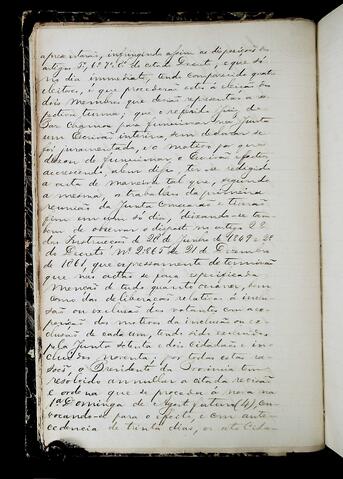 apresentaram, infringindo assim as disposições dos
artigos 5º, 6º, 7º, 8º do citado Decreto, e que só
no dia immediato, tendo comparecido quatro
eleitores, é que procederão estes á eleição dos
dois Membros que devião representar a res-
pectiva turma; que o referido Juiz de
Paz chamou para funccionar na Junta
um Escrivão interino, sem declarar se
foi juramentado, e o motivo por que
deixou de funccionar o Escrivão effectivo,
accrescendo, alem disso, ter-se redigido
a acta de maneira tal que, segundo
a mesma, os trabalhos da primeira
reunião da Junta começarão e tiverão
fim em um só dia, deixando-se tam-
bem de observar o disposto no artigo 22
das Instrucções de 28 de Junho de 1849 e 2º
do Decreto Nº 2865 de 21 de Dezembro
de 1861, que expressamente determinão
que nas actas se faça especificada
menção de tudo quanto occorrer, bem
como das deliberações relativas á inclu-
são ou exclusão dos votantes com a ex-
posição dos motivos da inclusão ou ex-
clusão de cada um, tendo sido excluidos
pela Junta setenta e dois cidadãos e in-
cluidos noventa; por todas estas ra-
sões, o Presidente da Provincia tem
resolvido annullar a citada revisão
e ordena que se proceda á nova na
1ª Dominga de Agosto futuro (4), con-
vocando-se para o effeito, e com ante-
cedencia de trinta dias, os oito Cida-